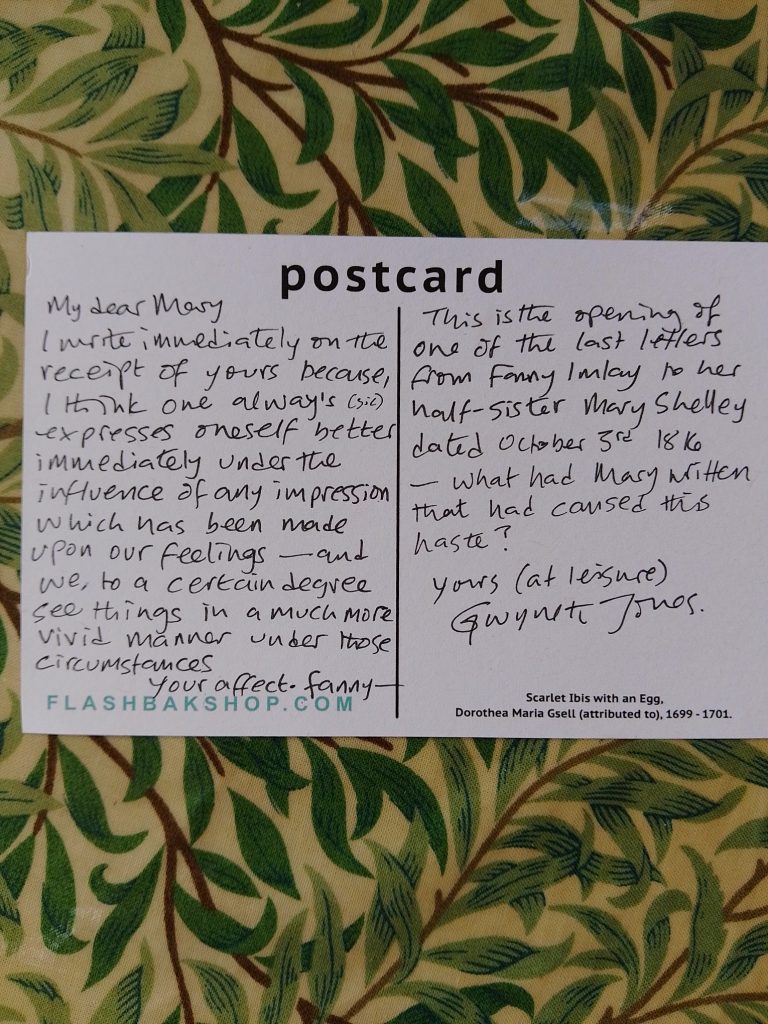 postcard
My dear Mary
I write immediately on the
receipt of yours because,
I think one alway's (sic)
expresses oneself better
immediately under the
influence of any impression
which has been made
upon our feelings — and
we, to a certain degree
see things in a much more
vivid manner under those
circumstances
your affect. fanny —
FLASHBAKSHOP.COM
This is the opening of
one of the last letters
from Fanny Imlay to her
half-sister Mary Shelley
dated October 3rd 1816
— what had Mary written
that had caused this
haste?
yours (at leisure)
Gwyneth Jones.
Scarlet Ibis with an Egg,
Dorothea Maria Gsell (attributed to), 1699 - 1701.